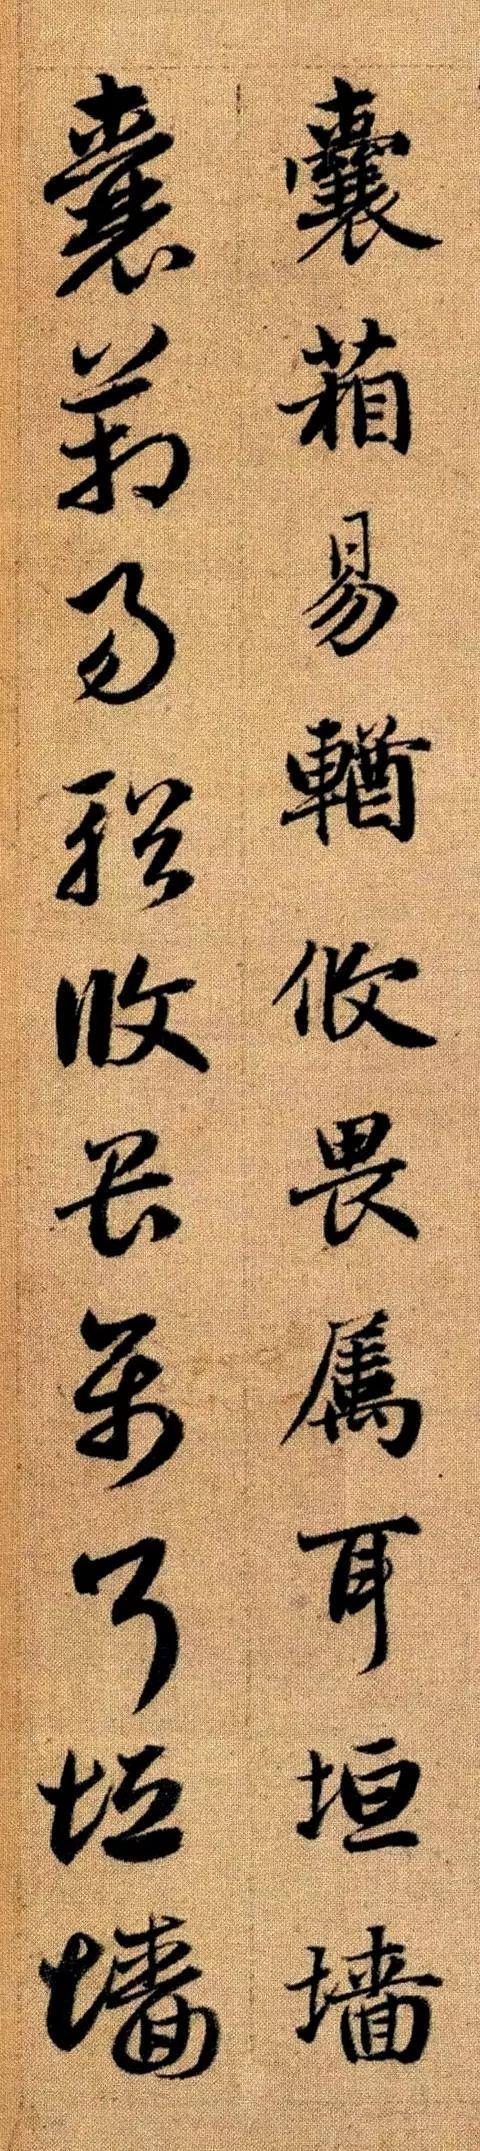 囊箱易輶攸畏属耳垣墙
囊箱易輶攸畏属耳垣墙